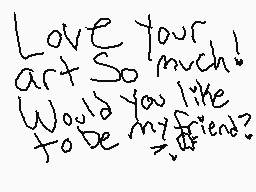 Love your
art so much!
Would you like
to be my friend?